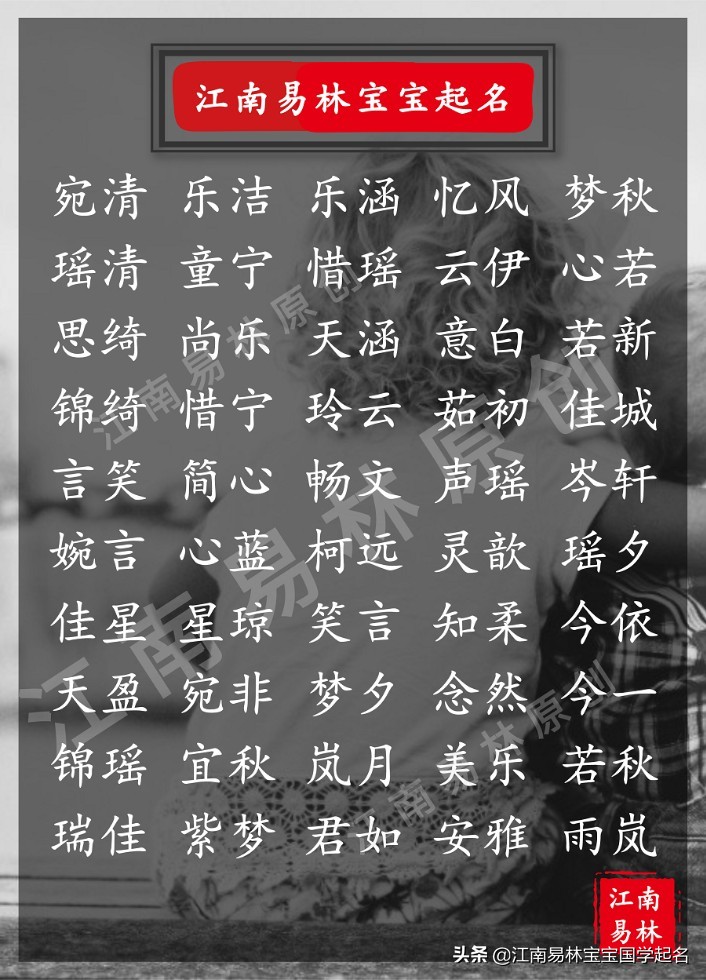 江南易林宝宝起名
宛清 乐洁 乐涵 忆风 梦秋
瑶清 童宁 惜瑶 云伊 心若
思绮 尚乐 天涵 意白 若新
锦绮 惜宁 玲云 茹初 佳城
言笑 简心 畅文 声瑶 岑轩
婉言 心蓝 柯远 灵歆 瑶夕
佳星 星琼 笑言 知柔 今依
天盈 宛非 梦夕 念然 今一
锦瑶 宜秋 岚月 美乐 若秋
瑞佳 紫梦 君如 安雅 雨岚
江南易林原创
江南易林原创
江南易林原创
江南
易林
头条 @江南易林宝宝国学起名